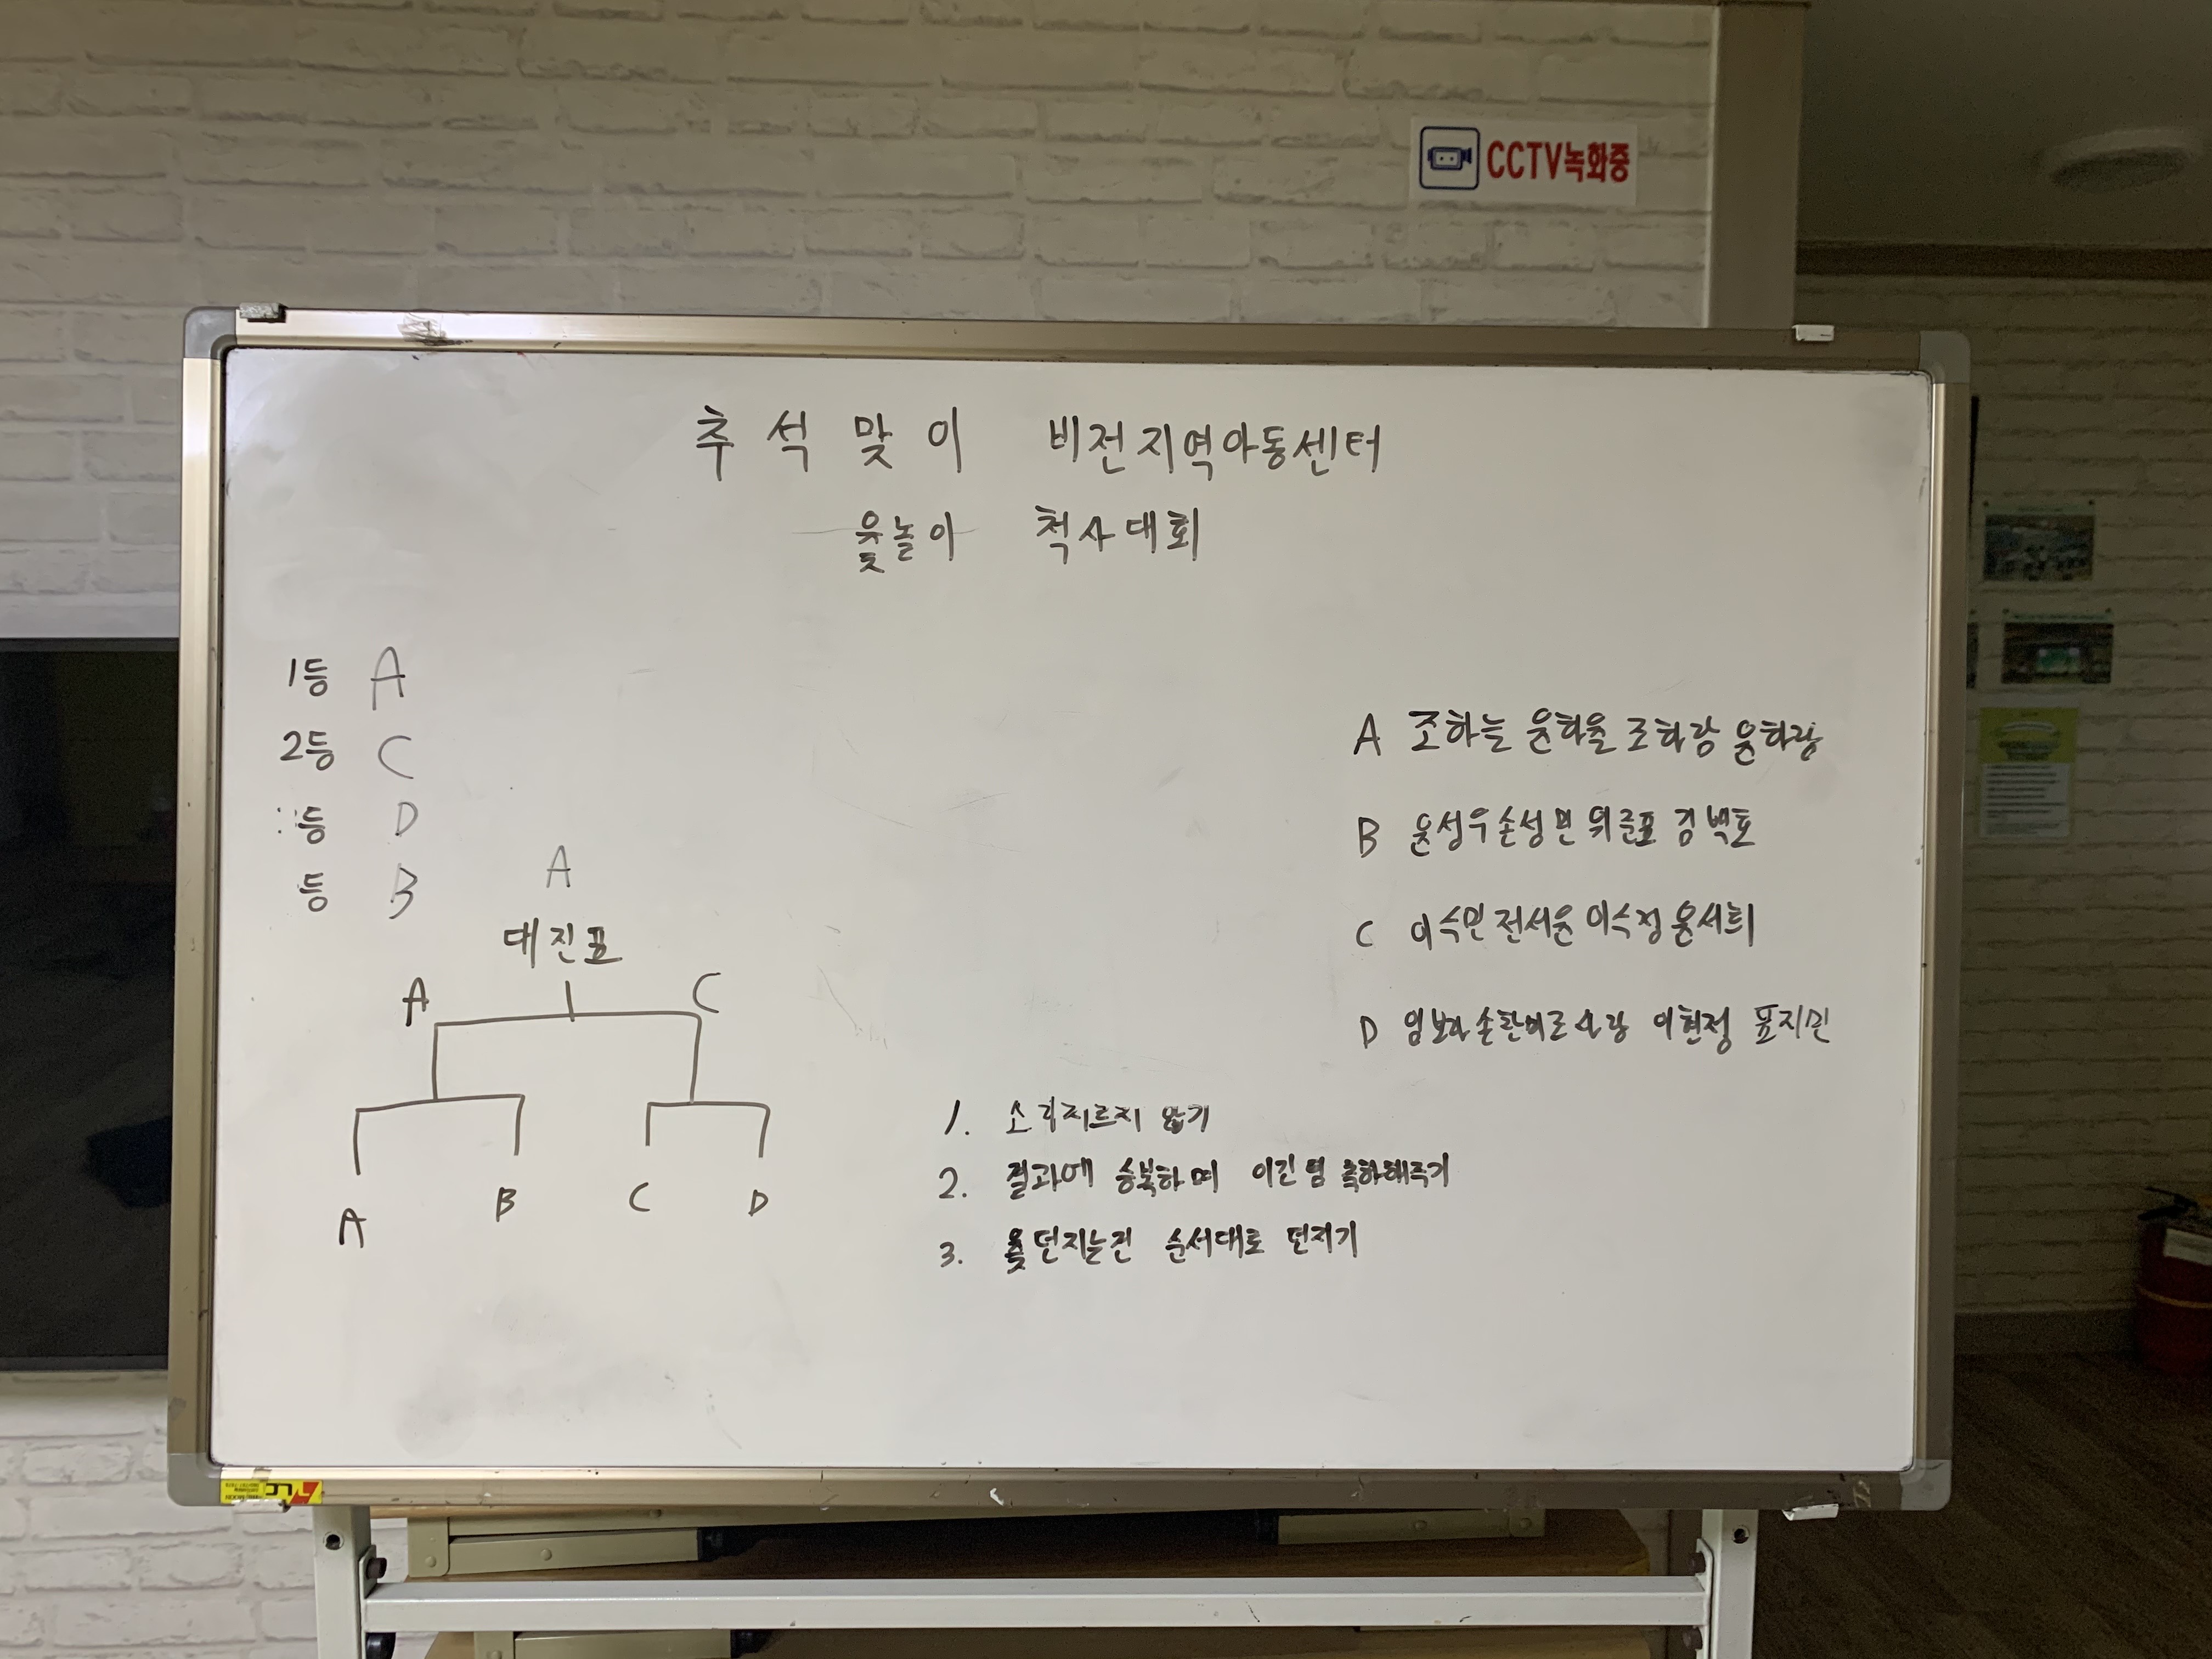 CCTV녹화중
추석맞이 비전지역아동센터
윷놀이 척사대회
1등 A
2등 C
등 D
등 B
A
대진표
A C
A B C D
A 조하늘 윤하율 조하랑 윤하랑
B 윤성우 손성민 위준표 김백호
C 이수민 전서윤 이수정 윤서희
D 임보라 이현정 표지민
1. 소리지르지 않기
2. 결과에 승복하며 이긴팀 축하해주기
3. 윷던지는건 순서대로 던지기